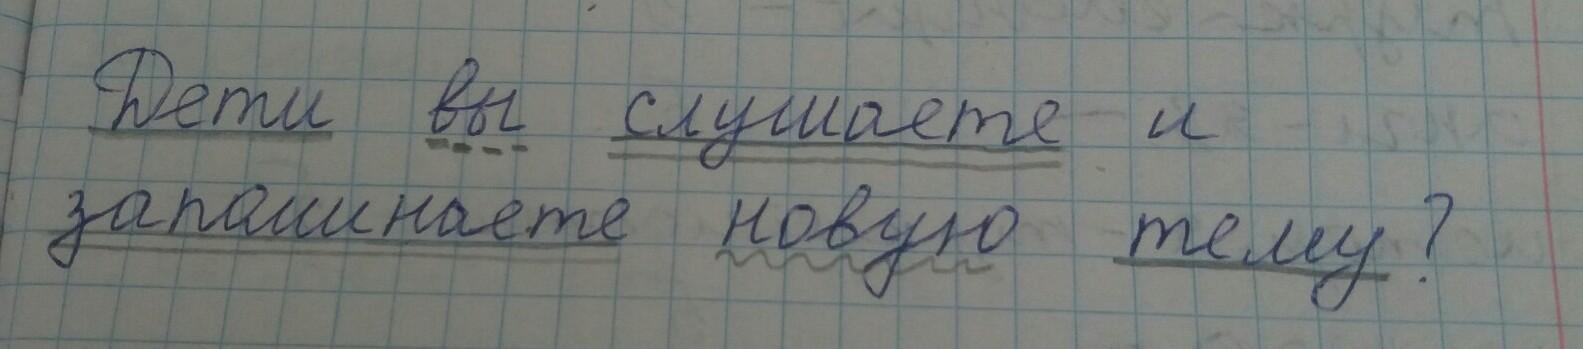 Дети вы слушаете и
запоминаете новую тему?